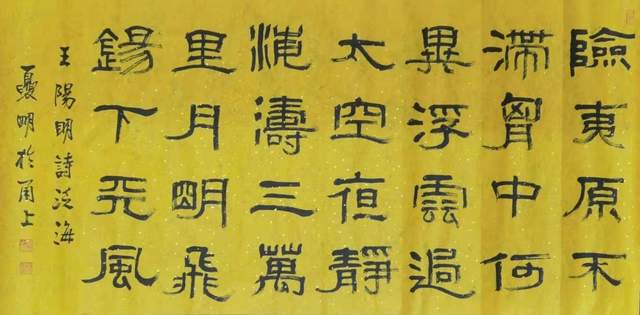 險夷原不
滯胷中何
異浮雲過
太空夜靜
海濤三萬
里月明飛
錫下天風
王陽明詩泛海
夏明於甬上